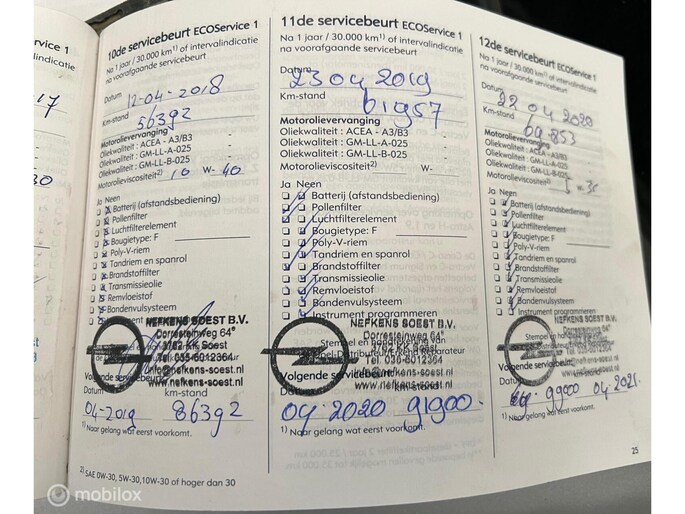 rvice 1
ndicatie
17
30
10de servicebeurt ECOService 1
Na 1 jaar / 30.000 km1) of intervalindicatie
na voorafgaande servicebeurt
Datum 12-04-2018
Km-stand 56392
Motorolievervanging
Oliekwaliteit : ACEA - A3/B3 -
Oliekwaliteit : GM-LL-A-025 -
Oliekwaliteit : GM-LL-B-025 -
Motorolieviscositeit2) 10 W- 40
Ja Neen
Batterij (afstandsbediening)
Pollenfilter
Luchtfilterelement
Bougietype: F
Poly-V-riem
Tandriem en spanrol
Brandstoffilter
Transmissieolie
Remvloeistof
Bandenvulsysteem
NEFKENS SOEST B.V.
Dorresteinweg 64a
3762 KK Soest
Tel. 035-6012364
info@nefkens-soest.nl
www.nefkens-soest.nl
Volgende servicebeurt
Datum km-stand
04-2019 86392
1) Naar gelang wat eerst voorkomt.
2) SAE 0W-30, 5W-30,10W-30 of hoger dan 30
11de servicebeurt ECOService 1
Na 1 jaar / 30.000 km1) of intervalindicatie
na voorafgaande servicebeurt
Datum 23 04 2019
Km-stand 61957
Motorolievervanging
Oliekwaliteit : ACEA - A3/B3 -
Oliekwaliteit : GM-LL-A-025 -
Oliekwaliteit : GM-LL-B-025 -
Motorolieviscositeit2) W-
Ja Neen
Batterij (afstandsbediening)
Pollenfilter
Luchtfilterelement
Bougietype: F
Poly-V-riem
Tandriem en spanrol
Brandstoffilter
Transmissieolie
Remvloeistof
Bandenvulsysteem
Instrument programmeren
NEFKENS SOEST B.V.
Dorresteinweg 64a
Stempel en handtekening van
3762 KK Soest
Opel-Distributeur/Erkend Reparateur
Tel. 035-6012364
info@nefkens-soest.nl
www.nefkens-soest.nl
Volgende servicebeurt
Datum km-stand
04 2020 91900
1) Naar gelang wat eerst voorkomt.
12de servicebeurt ECOService 1
Na 1 jaar / 30.000 km1) of intervalindicatie
na voorafgaande servicebeurt
Datum 22 04 2020
Km-stand 69.853
Motorolievervanging
Oliekwaliteit : ACEA - A3/B3
Oliekwaliteit : GM-LL-A-025
Oliekwaliteit : GM-LL-B-025
Motorolieviscositeit2) 5 W-
Ja Neen
Batterij (afstandsbediening)
Pollenfilter
Luchtfilterelement
Bougietype: F
Poly-V-riem
Tandriem en spanrol
Brandstoffilter
Transmissieolie
Remvloeistof
Bandenvulsysteem
Instrument programmeren
NEFKENS SOEST B.V.
Dorresteinweg 64a
Tel. 035-6012364
www.nefkens-soest.nl
Volgende
Datum km-stand
99900 04 2021
1) Naar gelang wat eerst voorkomt.
25
mobilox